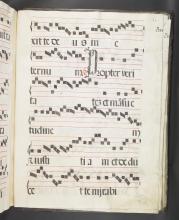 xit te de us in e
ternu m Propter veri
ta tez et mansue
tudine m
et iusti ti a m et de du
ce t te mirabi